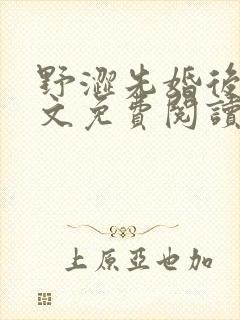 野澀先婚後
文免費閱讀
上原亞也加